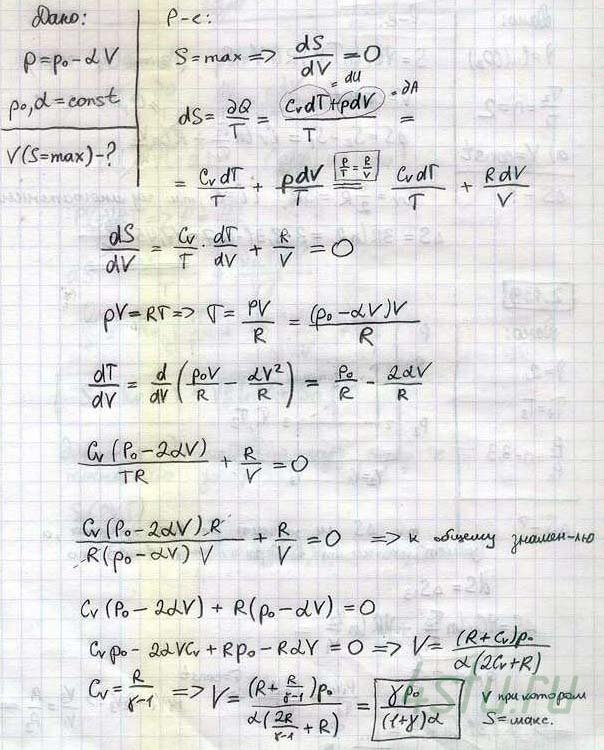 Дано:
p = p₀ - αV
p₀, α = const
V(S=max) - ?
Р-е:
S = max => dS/dV = 0
dS = ∂Q/T = (CvdT + pdV)/T =
= dU
= ∂A
= CvdT/T + pdV/T = CvdT/T + RdV/V
p/T = R/V
dS/dV = Cv/T · dT/dV + R/V = 0
pV = RT => T = PV/R = (p₀ - αV)V/R
dT/dV = d/dV (p₀V/R - αV²/R) = p₀/R - 2αV/R
Cv(P₀ - 2αV)/TR + R/V = 0
Cv(P₀ - 2αV)R/R(p₀ - αV)V + R/V = 0 => к общему знамен-лю
Cv(P₀ - 2αV) + R(p₀ - αV) = 0
Cvp₀ - 2αVCv + Rp₀ - RαV = 0 => V = (R + Cv)p₀/α(2Cv + R)
Cv = R/γ-1 => V = (R + R/γ-1)p₀/α(2R/γ-1 + R) = γp₀/(1+γ)α V при котором
S = макс.
4STU.RU